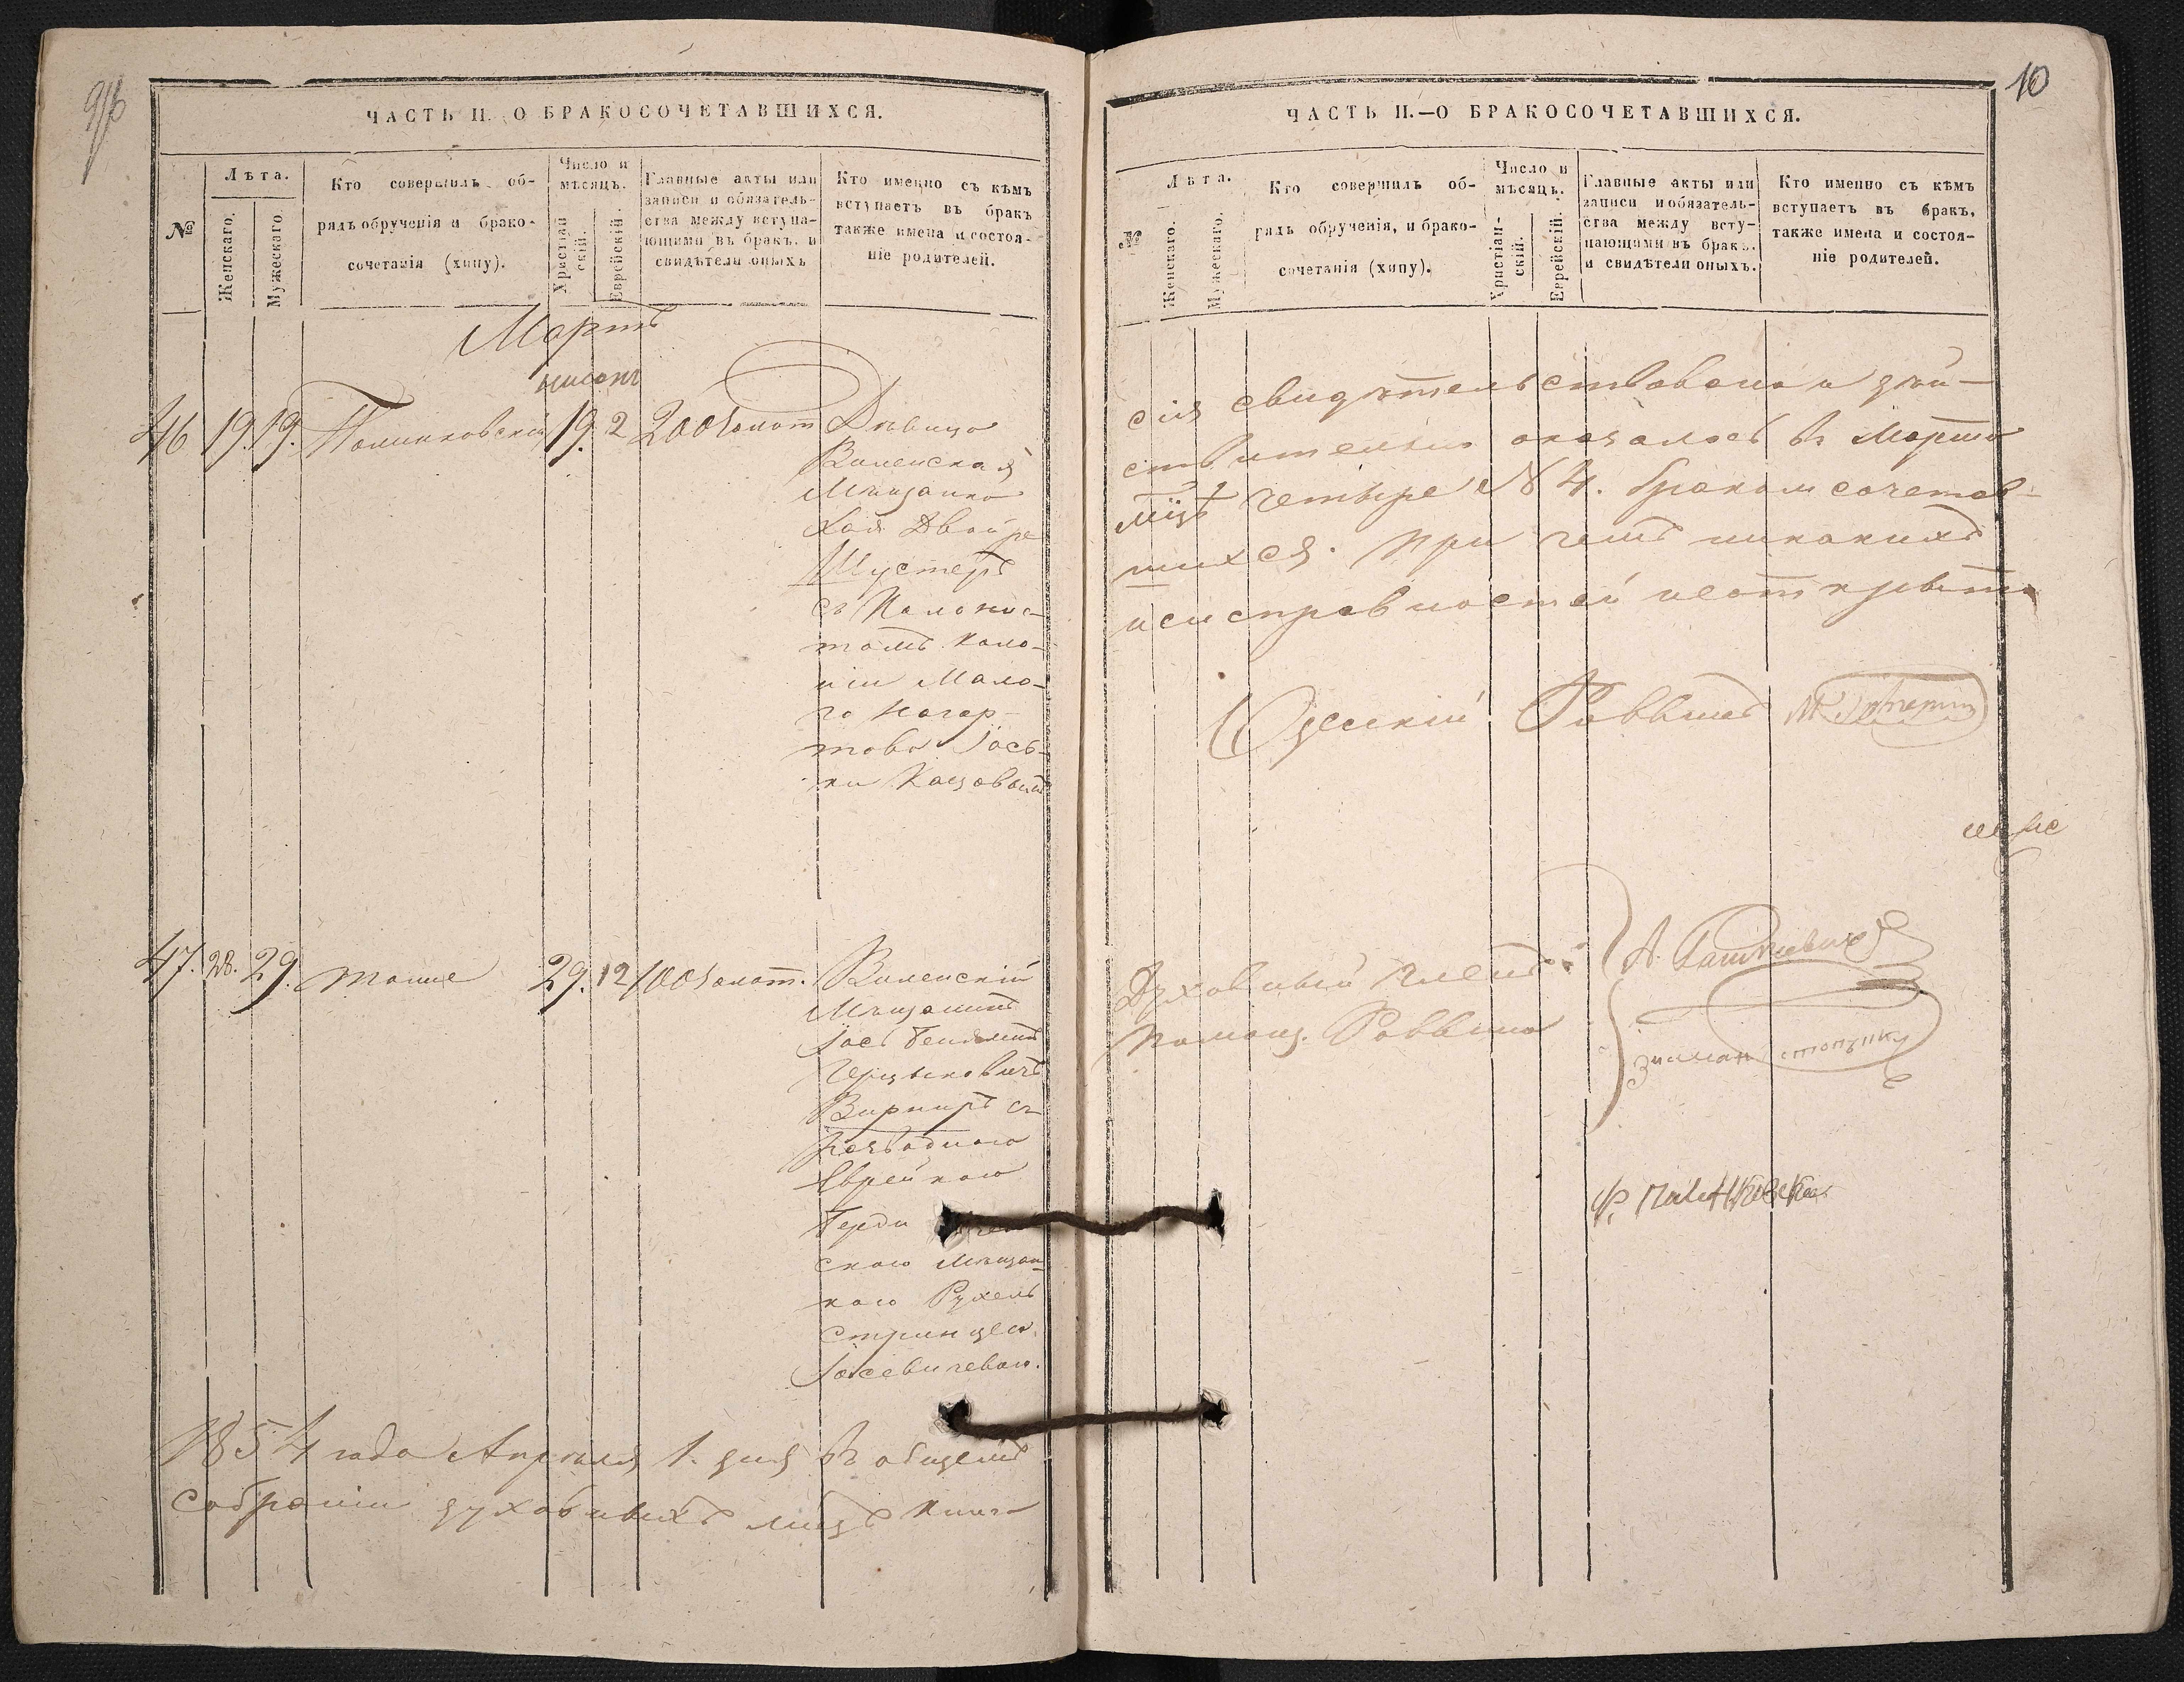 ЧАСТЬ II. О БРАКОСОЧЕТАВШИХСЯ.
№
Лѣта.
Женскаго.
Мужескаго.
Кто совершилъ об-
рядъ обрученія и брако-
сочетанія (хипу).
Число и
мѣсяцъ.
Христіан
скій.
Еврейскій.
Главные акты или
записи и обязатель-
ства между всту па-
ющими въ бракъ. и
свидѣтели оныхъ
Кто именно съ кѣмъ
вступаетъ въ бракъ
также имена и состоя-
ніе родителей.
Мартъ
нисонъ
46 19. 19. 19. 2 200 золот Дѣвица
Виленская
Мѣщанка
Хая Двойре
Шустеръ
съ Колонис-
томъ Коло-
ніи Мало-
го Нагар-
това Іось-
ки
47. 28. 29. тотже 29. 12 100 золот. Виленскій
Мѣщанинъ
Іось
съ
Разводною
Еврейкою
скою Мѣщан-
кою Рухель
1854 года Апрѣля 1. дня въ общемъ
собраніи духовныхъ лицъ книга
10
ЧАСТЬ II.—О БРАКОСОЧЕТАВШИХСЯ.
№
Лѣта.
Женскаго.
Мужескаго.
Кто совершилъ об-
рядъ обрученія, и брако-
сочетанія (хипу).
Число и
мѣсяцъ.
Христіан-
скій.
Еврейскій.
Главные акты или
записи и обязатель-
ства между всту-
пающими въ бракъ.
и свидѣтели оныхъ.
Кто именно съ кѣмъ
вступаетъ въ бракъ,
также имена и состоя-
ніе родителей.
сія свидѣтельствована и дѣй-
ствительно оказалось въ Мартѣ
м͠цѣ четыре № 4. бракомсочетав-
шихся. При чемъ никакихъ
неисправностей неоткрыто
Одесскій Раввинъ
Духовный Членъ
Помощ. Раввина